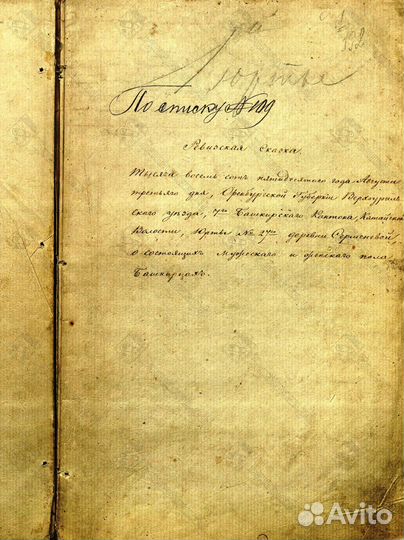 юртье
По списку № 109
Ревизская сказка.
Тысяча восемь сотъ пятидесятого года Августа
третьяго дня, Оренбургской Губернии Верхоурал
ского уѣзда, 7го Башкирского Кантона, Катайской
Волости, Юрты № 2го деревни Серменевой,
о состоящихъ мужеского и женского пола
Башкирцахъ.
Avito